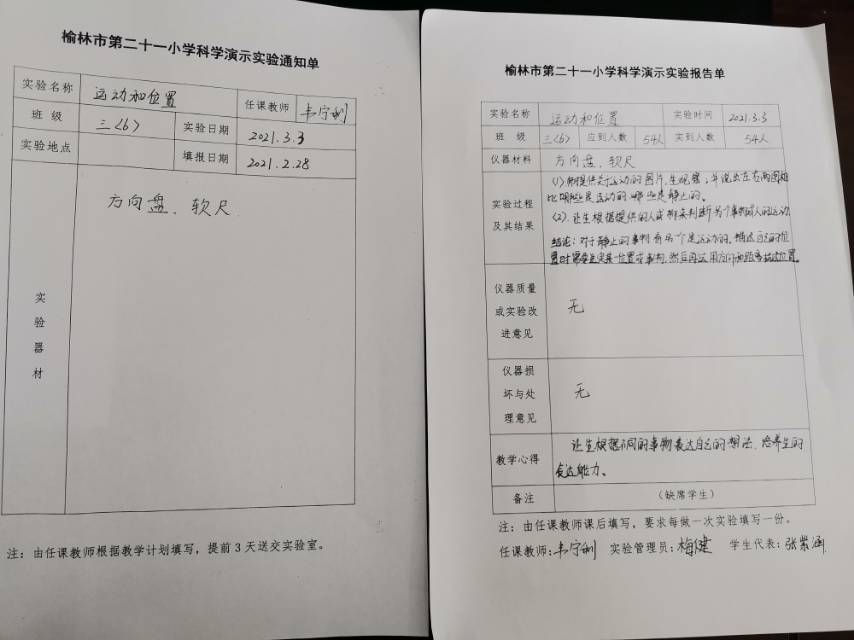 榆林市第二十一小学科学演示实验通知单
实验名称 运动和位置 任课教师 韦宁利
班 级 三<6> 实验日期 2021.3.3
实验地点 填报日期 2021.2.28
实验器材 方向盘、软尺
注：由任课教师根据教学计划填写，提前3天送交实验室。
榆林市第二十一小学科学演示实验报告单
实验名称 运动和位置 实验时间 2021.3.3
班 级 三<6> 应到人数 54人 实到人数 54人
仪器材料 方向盘、软尺
实验过程及其结果
(1) 师提供关于运动的图片，生观察，并说出左右两图对
比哪些是运动的哪些是静止的。
(2)、让生根据提供的人或物来判断另个事物或人的运动
结论：对于静止的事物 另个是运动的，描述自己的位
置时需要选定某一位置 事物，然后再运用方向和距离描述位置。
仪器质量或实验改进意见 无
仪器损坏与处理意见 无
教学心得 让生根据不同的事物表达自己的想法、培养生的
表达能力。
备注 （缺席学生）
注：由任课教师课后填写，要求每做一次实验填写一份。
任课教师：韦宁利 实验管理员：梅健 学生代表：张紫涵